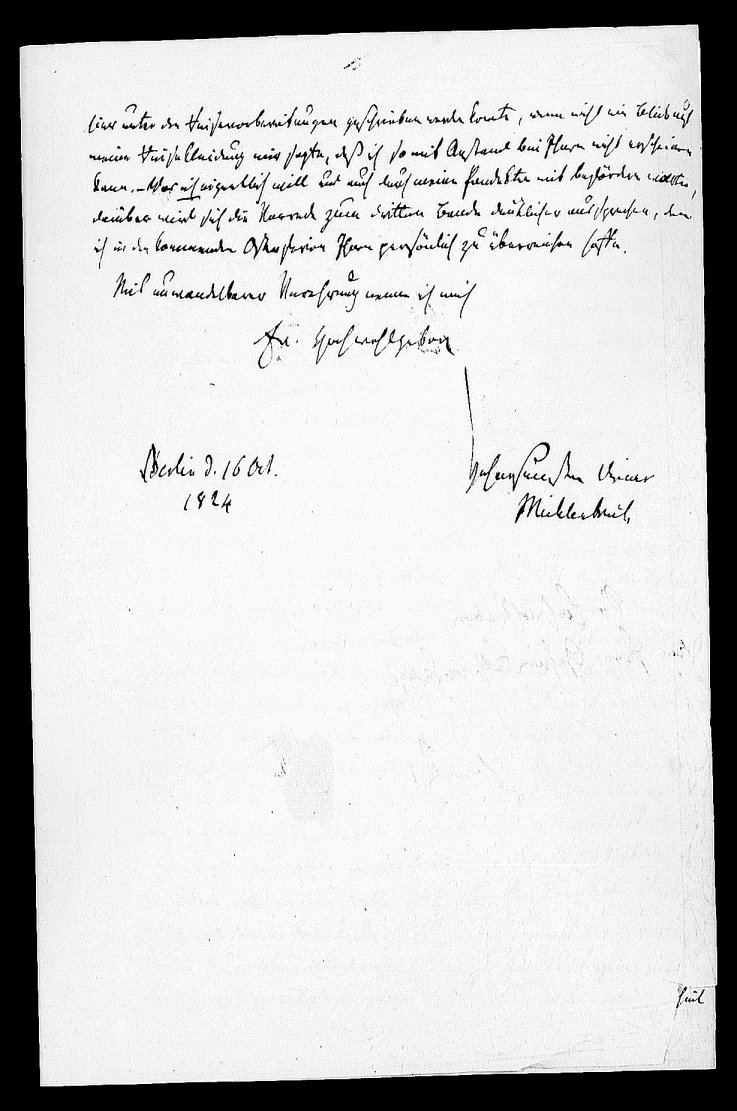 hier unter den Reisevorbereitungen geschrieben werden konte, wenn nicht ein Blick auf
meine Reisekleidung mir sagte, daß ich so mit Anstand bei Ihnen nicht erscheinen
kann. – Was ich eigentlich will und auch durch meine Pandekten mit befördern möchte,
darüber wird sich die Vorrede zum dritten Bande deutlicher aussprechen, den
ich in den kommenden Osterferien Ihnen persönlich zu überreichen hoffe.
Mit unwandelbarer Verehrung nenne ich mich
Ew. Hochwohlgeboren
Berlin d. 16 Oct.
1824
gehorsamsten Diener
Mühlenbruch